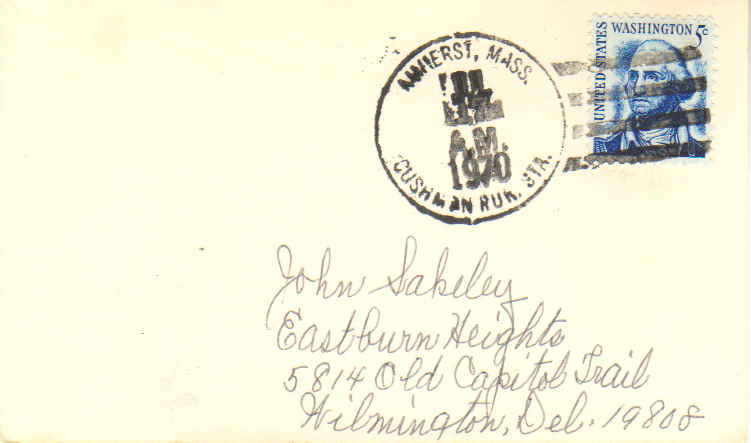 UNITED STATES
WASHINGTON 5c
AMHERST, MASS.
JUL
17
A.M.
1970
CUSHMAN RUR. STA.
John Sakeley
Eastburn Heights
5814 Old Capitol Trail
Wilmington, Del. 19808